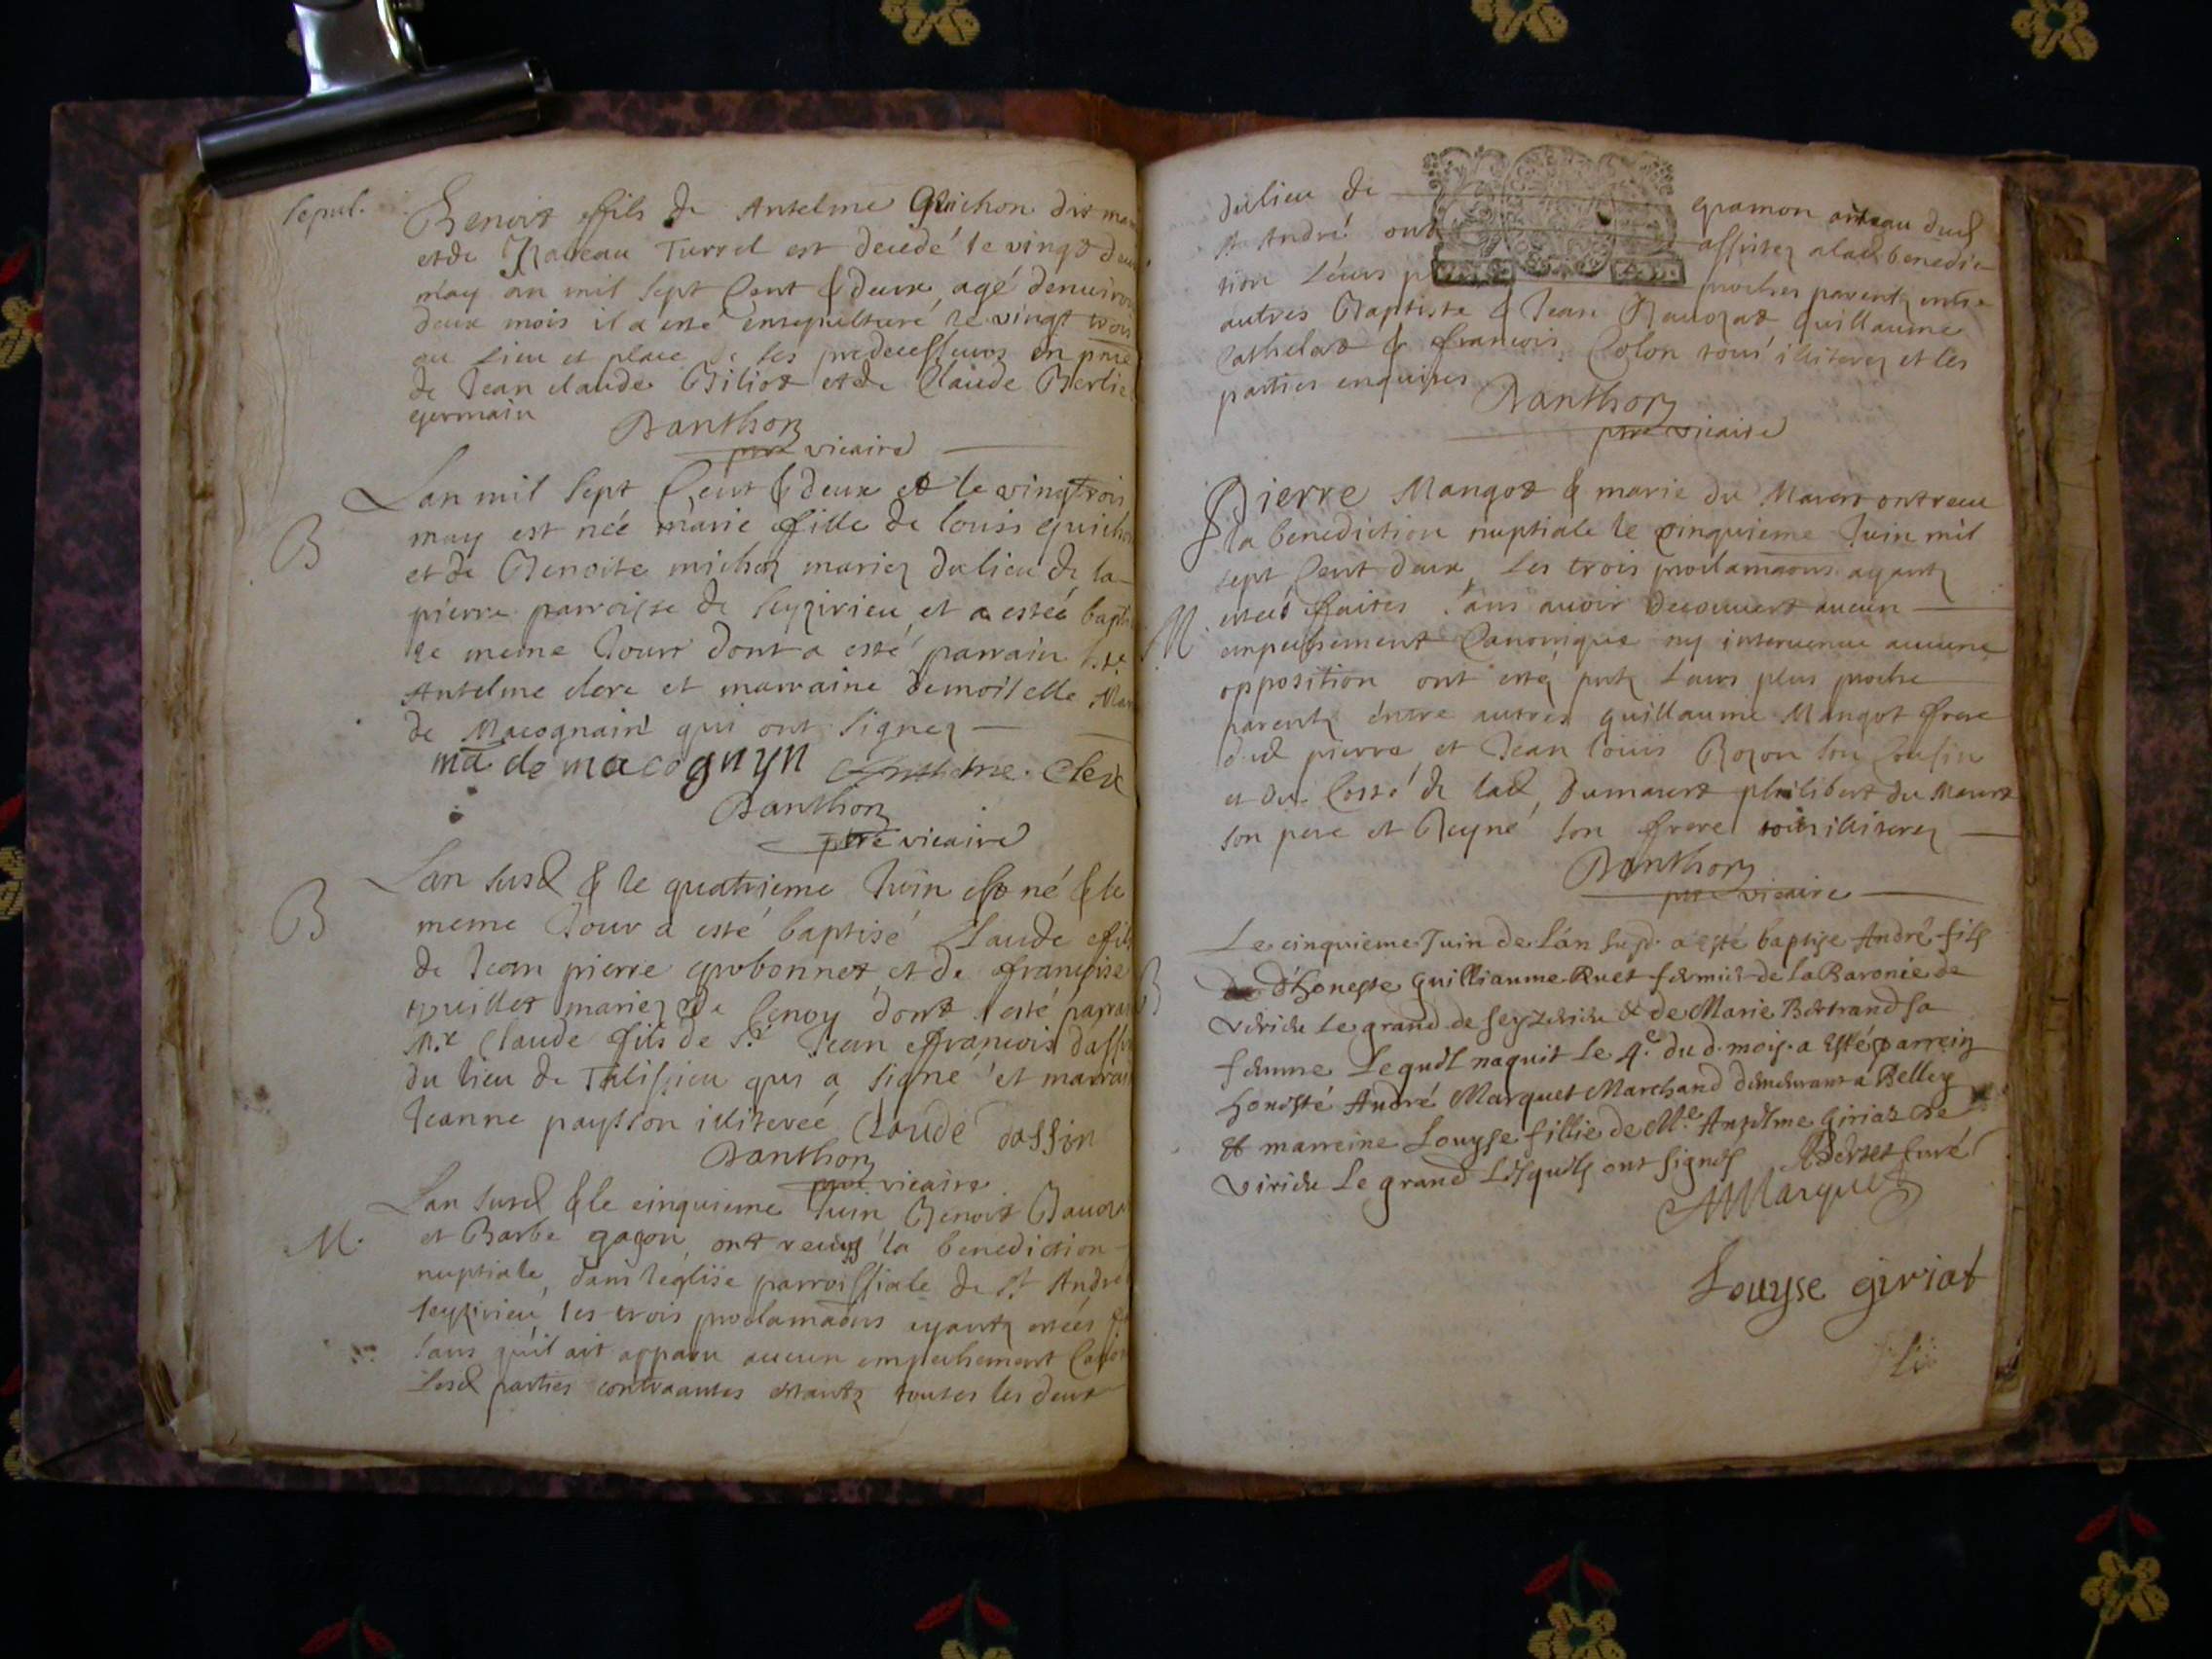 Sepul.
Benoist ffils de Antelme Guichon dit
et de Turrel est decedé le vingt
may an mil sept Cent & deux, agé denuiron
deux mois il a esté ensepulturé le vingt trois
au lieu et place de ses predecesseurs en pnce
de Jean claude Biliot et de Claude Berlie
germain
Danthon
pbre vicaire
Lan mil sept Cent & deux et le vingt trois
B
may est née marie ffille de louis guichon
et de Benoite michoz mariez du lieu de la
pierre parroisse de Seyzirieu, et a estée bapti
le meme Jour dont a esté parrain
Antelme clerc et marraine demoiselle
de Macognain qui ont signez
ma de macognyn Antelme Clerc
Danthon
pbre vicaire
Lan susd & le quatrieme Juin est né & le
B
meme Jour a esté baptisé Claude ffils
de Jean pierre grobonnet et de francoise
mariez de Cenoy dont a esté parra
Mr. Claude ffils de Sr. Jean ffrancois dassi
du lieu de Talissieu qui a signé et marrai
Jeanne paysson illiterée Claude dassin
Danthon
pbre vicaire
Lan susd & le cinquieme Juin Benoit
M.
et Barbe gagon ont receu la benediction
nuptiale, dans léglise parroissiale de St. André
Seyzirieu, les trois proclamaons ayantz estées
sans quil ait apparu aucun empechement
Lesd parties contraantes estantz toutes les deux
du lieu de gramon aud
St. André ont assistez a lad benedic
tion Leurs proches parentz entre
autres Baptiste & Jean Guillaume
Cathelaz & francois Colon tous illiterez et les
parties enquises
Danthon
pbre vicaire
Pierre Mangot & marie du Marest ont receu
la benediction nuptiale le cinquieme Juin mil
sept Cent deux, Les trois proclamaons ayantz
M.
estees ffaites sans auoir decouuert aucun
empechement Canonique ny interuenue aucune
opposition ont estez pntz Leurs plus proche
parentz entre autres guillaume Mangot ffrere
dud pierre, et Jean louis Bozon son Cousin
et du Costé de lad Dumarest philibert du Marest
son pere et Reyné son ffrere tous illiterez
Danthon
pbre vicaire
Le cinquieme Juin de Lán susd. a esté baptise André fils
B
d'honeste Guilliaume Ruet fermier de la Baronie de
Virieu Le grand de Seyzerieu & de Marie Bertrand sa
femme Lequel naquit Le 4.e du d. mois. a Esté parrein
honesté André Marquet Marchand demeurant a Belley
& marreine Louyse fillie de Mre. Anselme Giriat de
Virieu Le grand Lesquels ont signés Curé
AMarquet
Louyse giriat